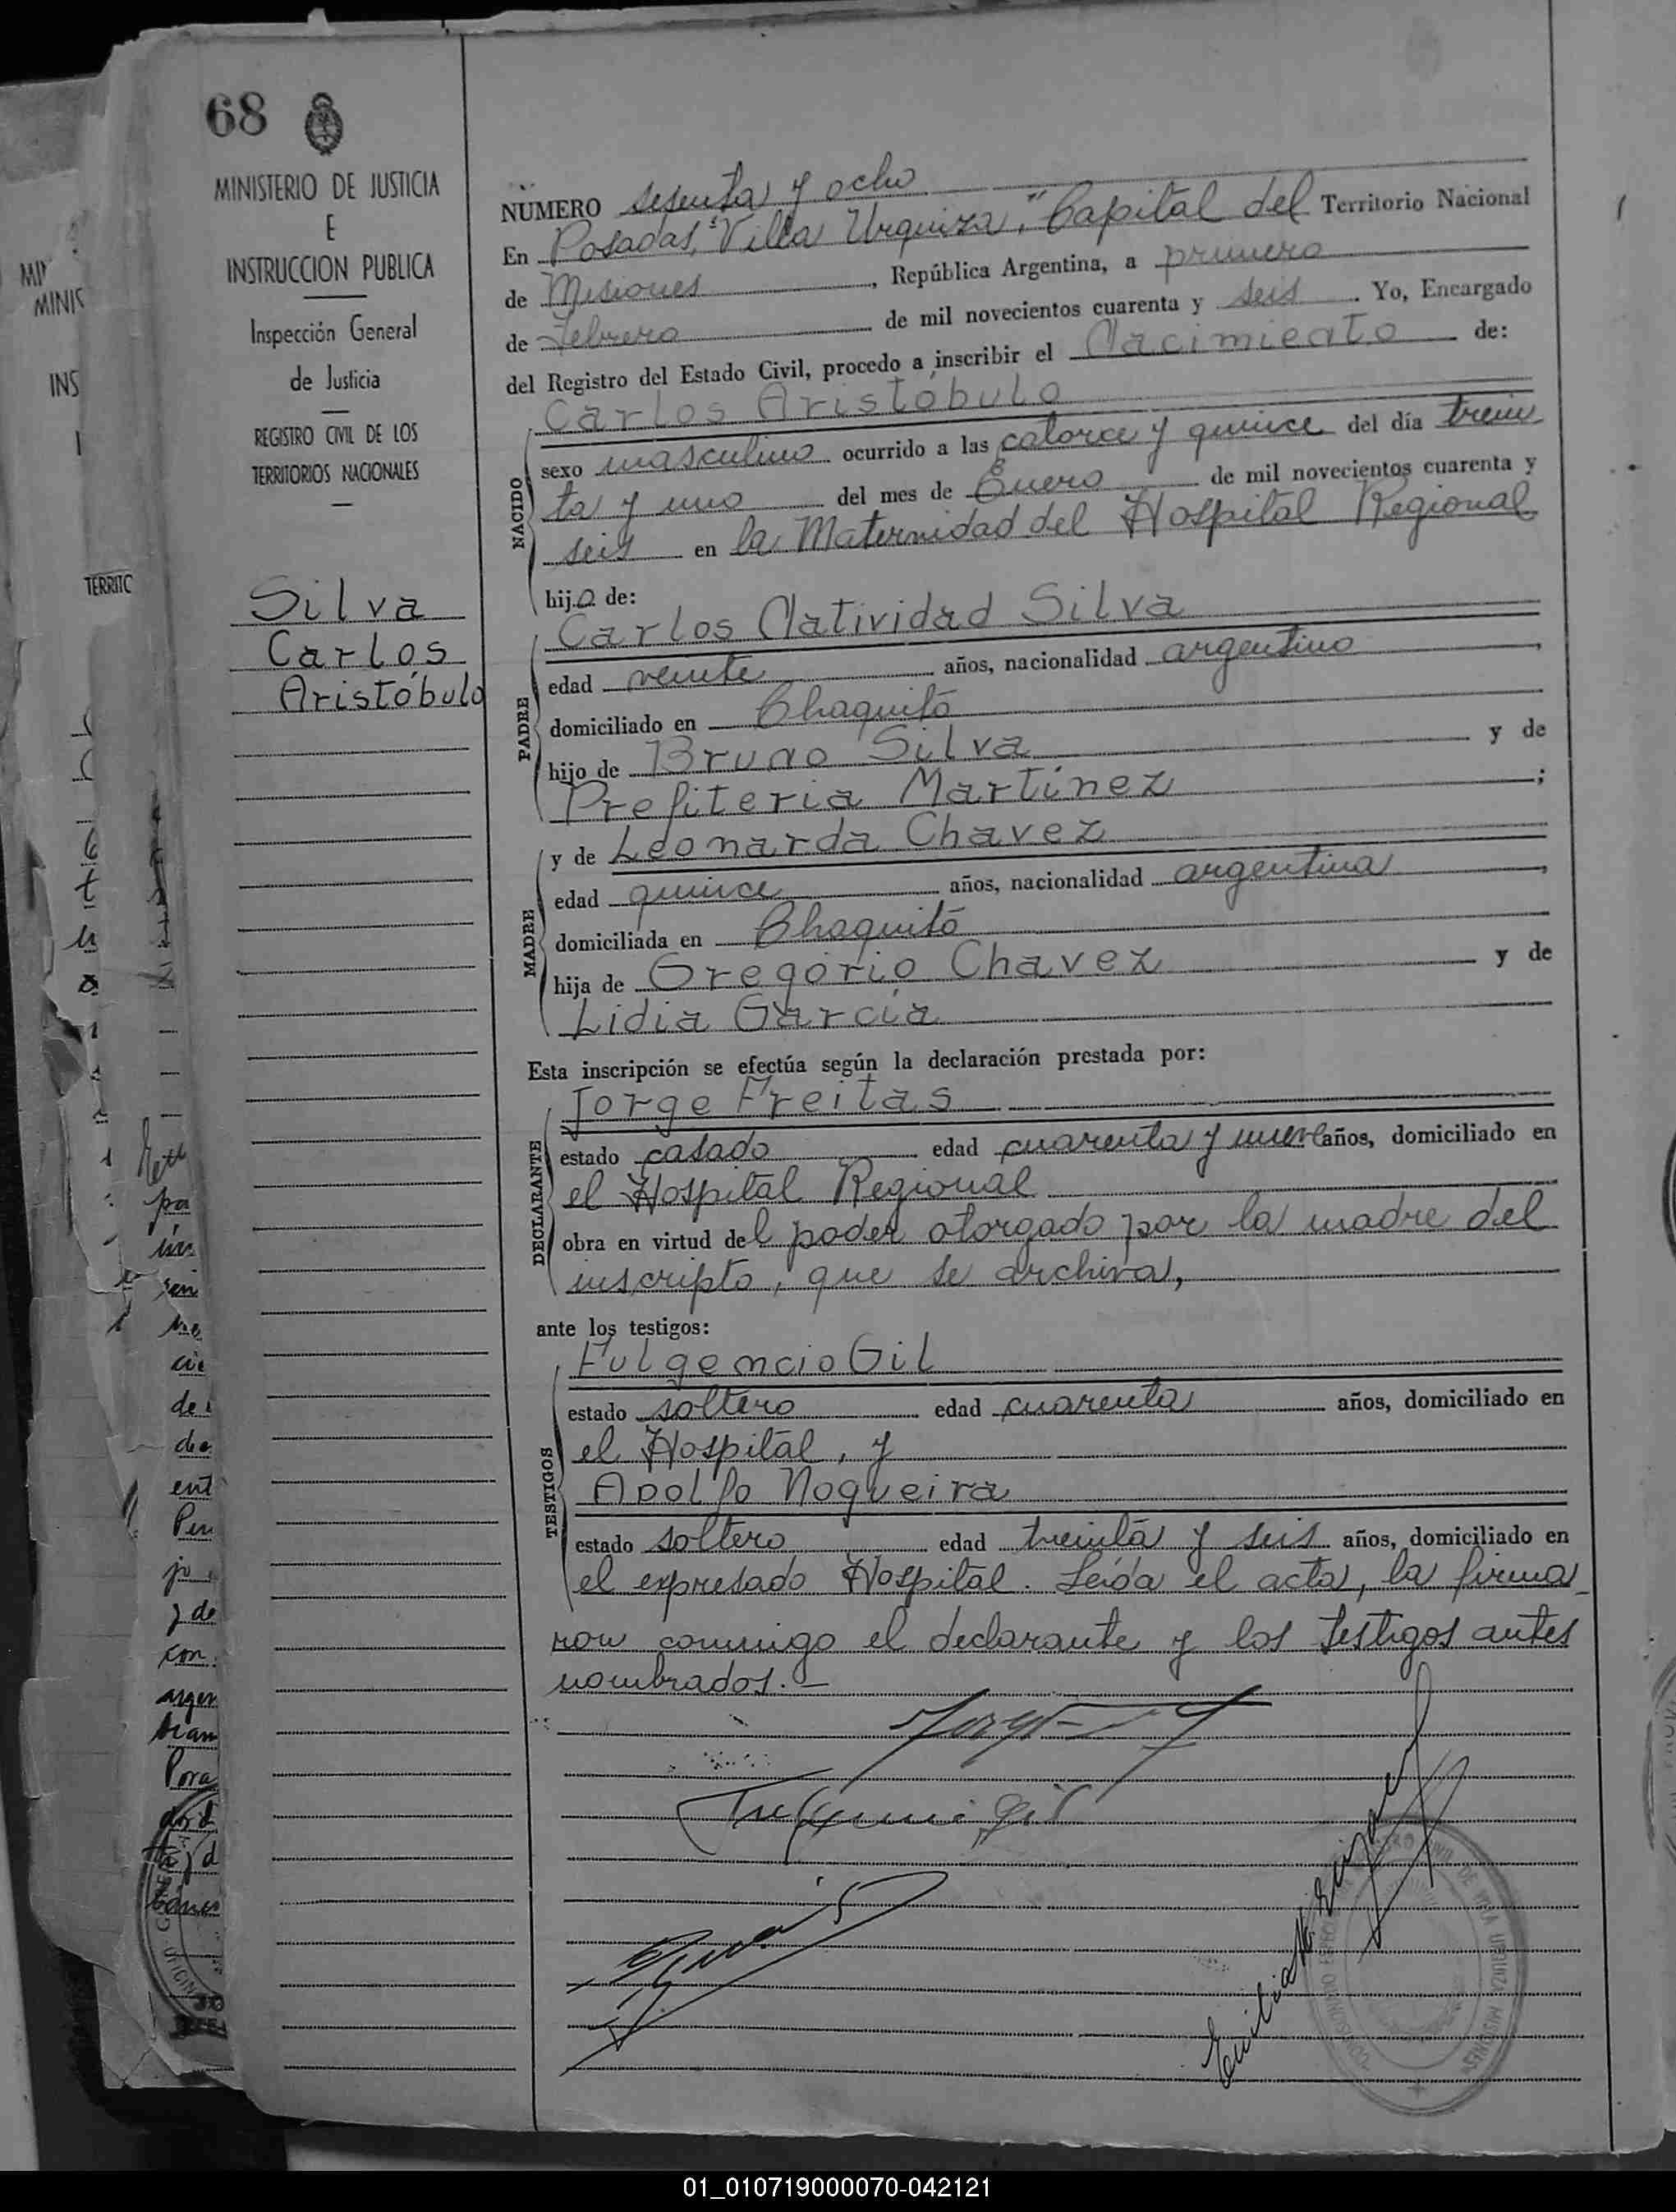 68
MINISTERIO DE JUSTICIA
E
INSTRUCCION PUBLICA
Inspección General
de Justicia
REGISTRO CIVIL DE LOS
TERRITORIOS NACIONALES
Silva
Carlos
Aristóbulo
NUMERO sesenta y ocho
En Posadas, "Villa Urquiza", Capital del Territorio Nacional
de Misiones, República Argentina, a primero
de febrero de mil novecientos cuarenta y seis. Yo, Encargado
del Registro del Estado Civil, procedo a inscribir el Nacimiento de:
Carlos Aristóbulo
NACIDO
sexo masculino ocurrido a las catorce y quince del día trein
ta y uno del mes de Enero de mil novecientos cuarenta y
seis en la Maternidad del Hospital Regional
hijo de:
Carlos Natividad Silva
PADRE
edad veinte años, nacionalidad argentino,
domiciliado en Chaquitó
hijo de Bruno Silva y de
Prefiteria Martínez;
y de Leonarda Chavez
MADRE
edad quince años, nacionalidad argentina,
domiciliada en Chaquitó
hija de Gregorio Chavez y de
Lidia García
Esta inscripción se efectúa según la declaración prestada por:
Jorge Freitas
DECLARANTE
estado casado edad cuarenta y nueve años, domiciliado en
el Hospital Regional
obra en virtud del poder otorgado por la madre del
inscripto, que se archiva,
ante los testigos:
Fulgencio Gil
TESTIGOS
estado soltero edad cuarenta años, domiciliado en
el Hospital, y
Adolfo Nogueira
estado soltero edad treinta y seis años, domiciliado en
el expresado Hospital. Leída el acta, la firma
ron conmigo el declarante y los testigos antes
nombrados.-
01_010719000070-042121